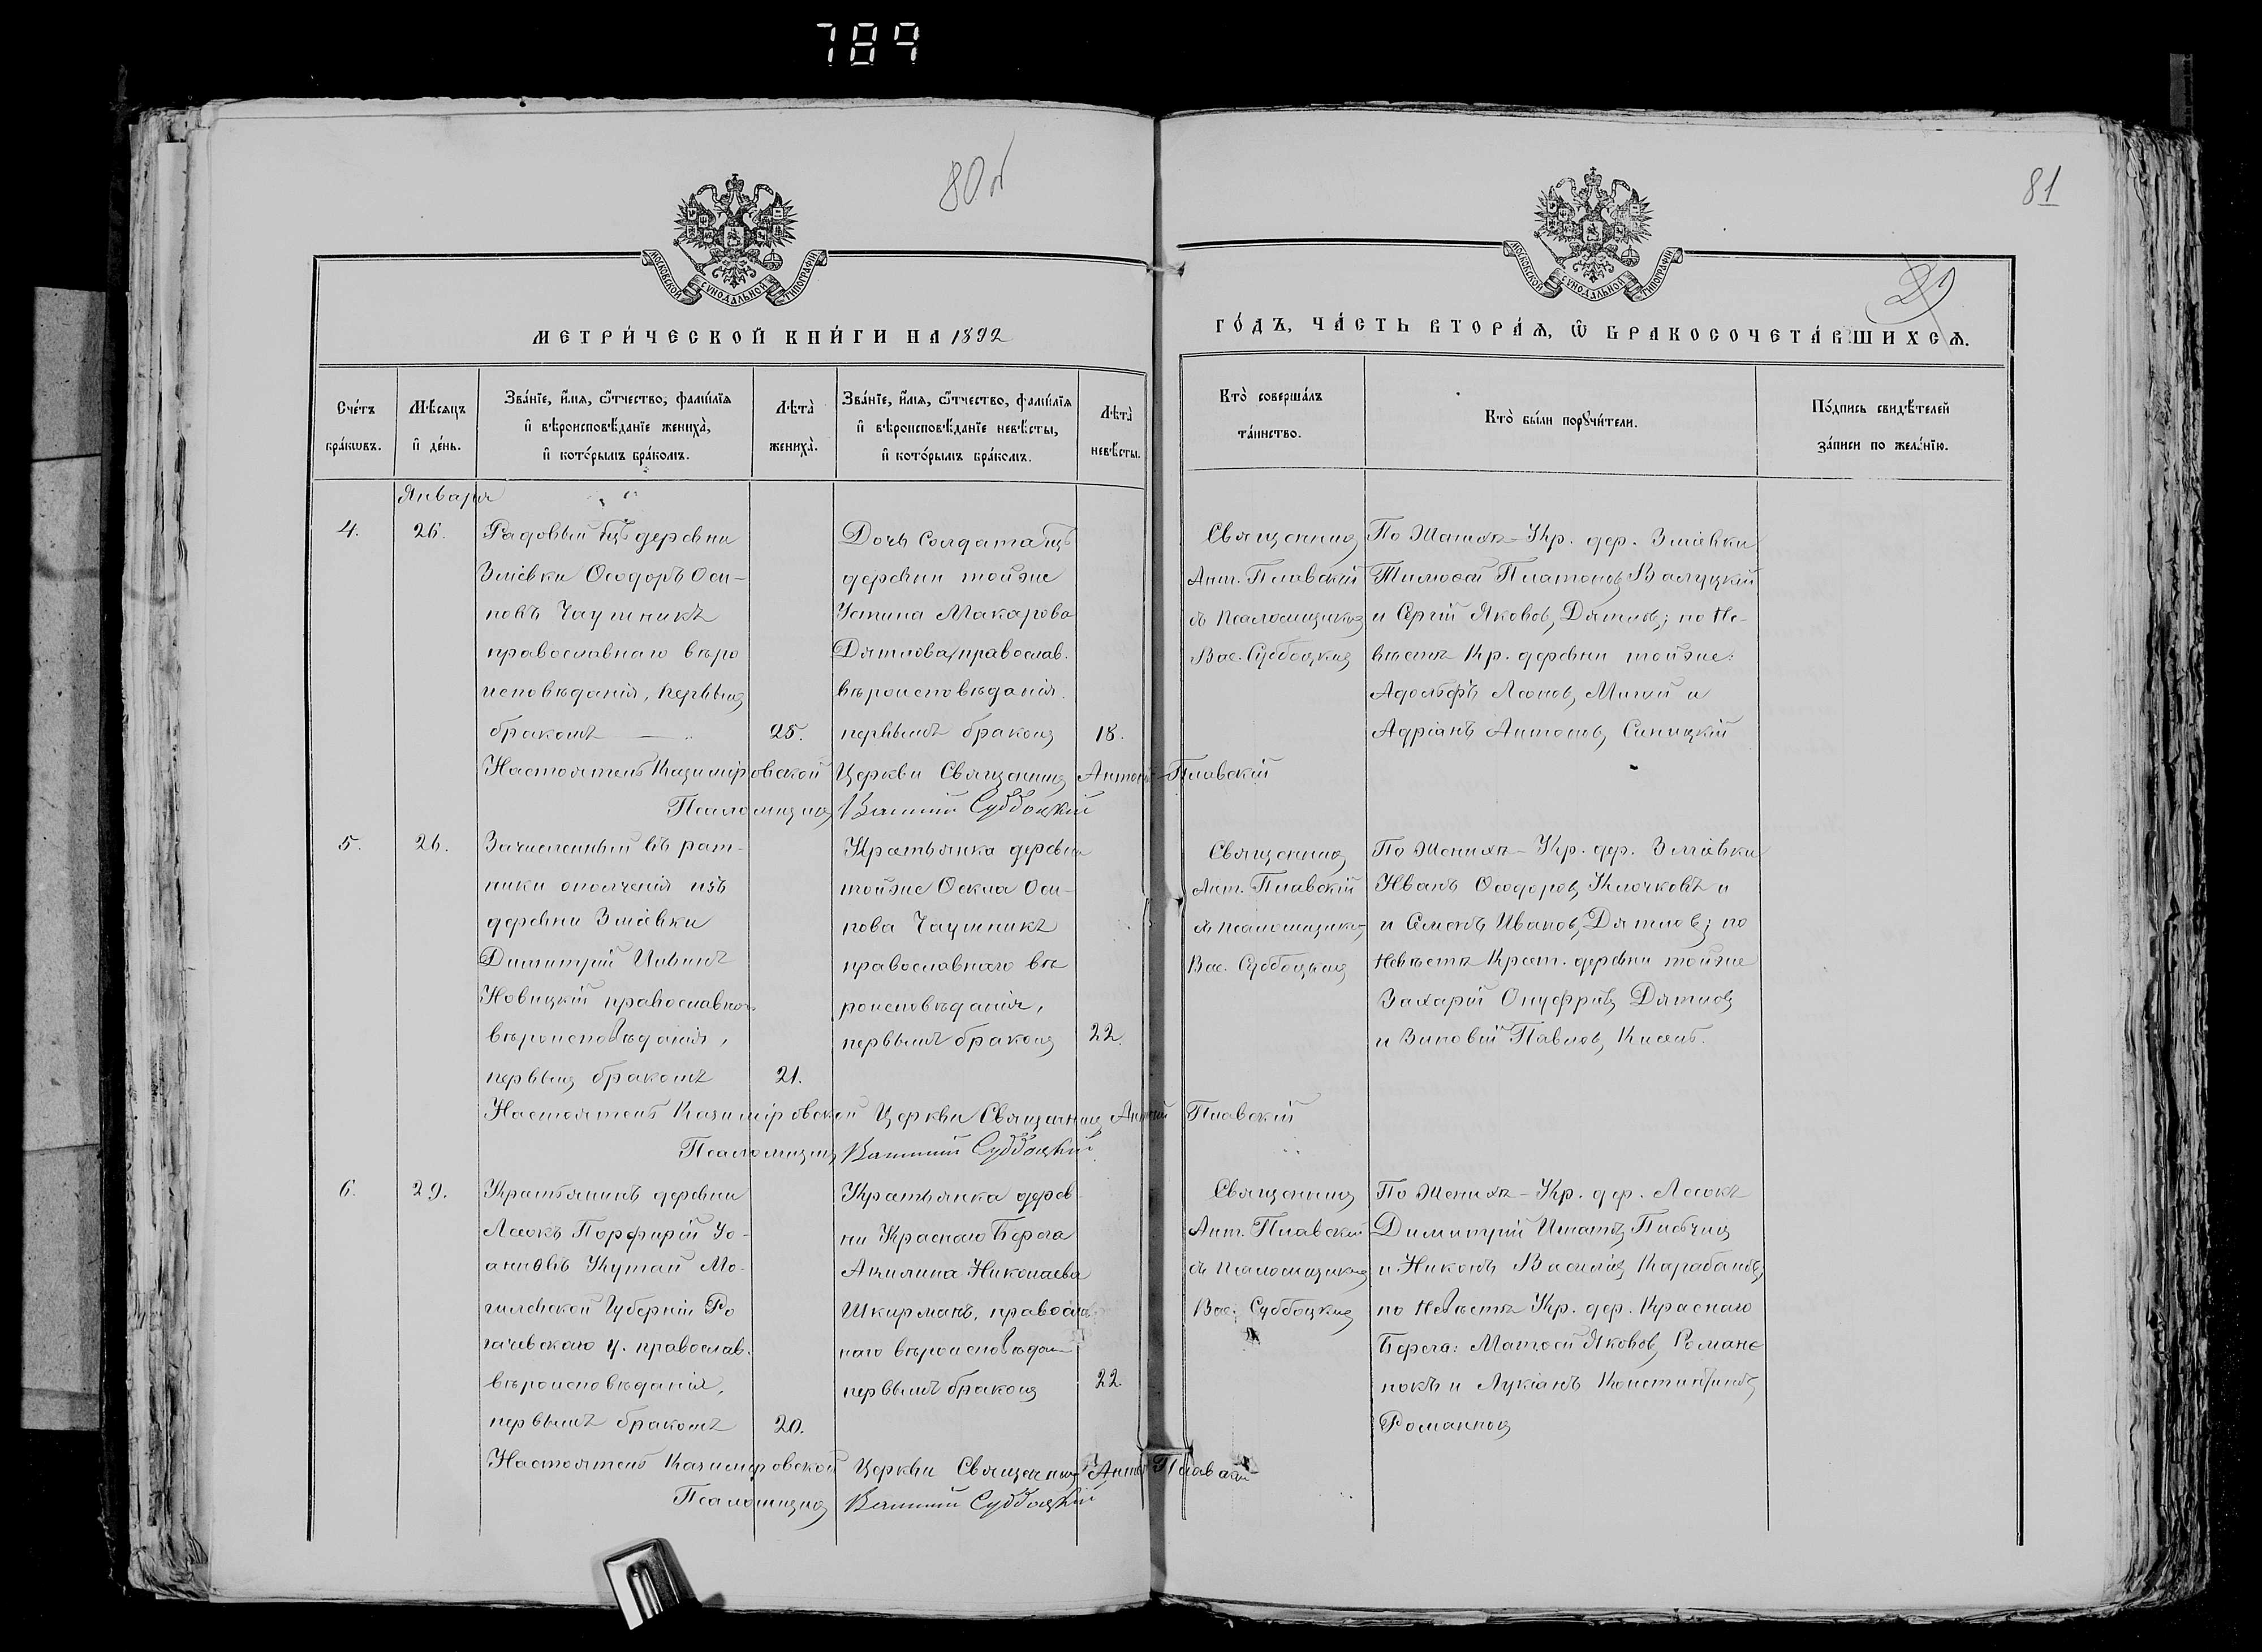 789
80 об
81
29
МОСКОВСКОЙ СѴНОДАЛЬНОЙ ТИПОГРАФІИ
МОСКОВСКОЙ СѴНОДАЛЬНОЙ ТИПОГРАФІИ
МЕТРИ́ЧЕСКОЙ КНИ́ГИ НА 1892
ГО́ДЪ, ЧА́СТЬ ВТОРА́Ѧ, Ѿ БРАКОСОЧЕТА́ВШИХСѦ.
Сче́тъ бра́кѡвъ.
Мѣ́сяцъ и҆ де́нь.
Зва́нїе, и҆́мѧ, ѻ҆́тчество, фами́лїѧ и҆ вѣроисповѣ́данїе жениха̀, и҆ кото́рымъ бра́комъ.
Лѣта̀ жениха̀.
Зва́нїе, и҆́мѧ, ѻ҆́тчество, фами́лїѧ и҆ вѣроисповѣ́данїе невѣ́сты, и҆ кото́рымъ бра́комъ.
Лѣта̀ невѣ́сты.
Кто̀ соверша́лъ та́инство.
Кто̀ бы́ли порꙋчи́тели.
По́дпись свидѣ́телей за́писи по жела́нїю.
Января
4.
26.
Рядовый изъ деревни
Зміевки Ѳеодоръ Оси-
повъ Чаушникъ
православнаго вѣро
исповѣданія, первымъ
бракомъ
25.
Дочь солдата изъ
деревни тойже
Устина Макарова
Дятлова, православ.
вѣроисповѣданія.
первымъ бракомъ
18.
Священникъ
Ант. Плавскій
съ псаломщикомъ
Вас. Субботскимъ
По Женихѣ - Кр. дер. Зміевки
Тимоѳей Платоновъ Валуцкій
и Сергій Яковов. Дятловъ; по Не-
вѣстѣ Кр. деревни тойже:
Адольфъ Леонов. Мигай и
Адріанъ Антонов. Синицкій
Настоятель Казимировской Церкви Священникъ Антоній Плавскій
Псаломщикъ Василій Субботскій
5.
26.
Зачисленный въ рат-
ники ополченія изъ
деревни Зміевки
Димитрій Ильинъ
Новицкій православнаго
вѣроисповѣданія,
первымъ бракомъ
21.
Крестьянка деревни
тойже Ѳекла Оси-
пова Чаушникъ
православнаго вѣ
роисповѣданія,
первымъ бракомъ
22.
Священникъ
Ант. Плавскій
съ псаломщикомъ
Вас. Субботскимъ
По Женихѣ - Кр. дер. Зміевки
Иванъ Ѳеодоров. Клочковъ и
и Семенъ Иванов. Дятловъ; по
Невѣстѣ Крест. деревни тойже
Захарій Онуфріев. Дятловъ
и Зиновій Павлов. Кисель.
Настоятель Казимировской Церкви Священникъ Антоній Плавскій
Псаломщикъ Василій Субботскій
6.
29.
Крестьянинъ деревни
Лесокъ Порфирій Іо-
анновъ Кутай Мо-
гилевской Губерніи Ро
гачевскаго у. православ.
вѣроисповѣданія,
первымъ бракомъ
20.
Крестьянка дерев-
ни Краснаго Берега
Акилина Николаева
Шкирманъ, православ
наго вѣроисповѣдан
первымъ бракомъ
22.
Священникъ
Ант. Плавскій
съ псаломщикомъ
Вас. Субботскимъ
По Женихѣ - Кр. дер. Лесокъ
Димитрій Игнатов.
и Никонъ Васильев. Карабановъ,
по Невѣстѣ Кр. дер. Краснаго
Берега: Матѳей Яковов. Романе
нокъ и Лукіанъ Константинов.
Романенко
Настоятель Казимировской Церкви Священникъ Антоній Плавскій
Псаломщикъ Василій Субботскій